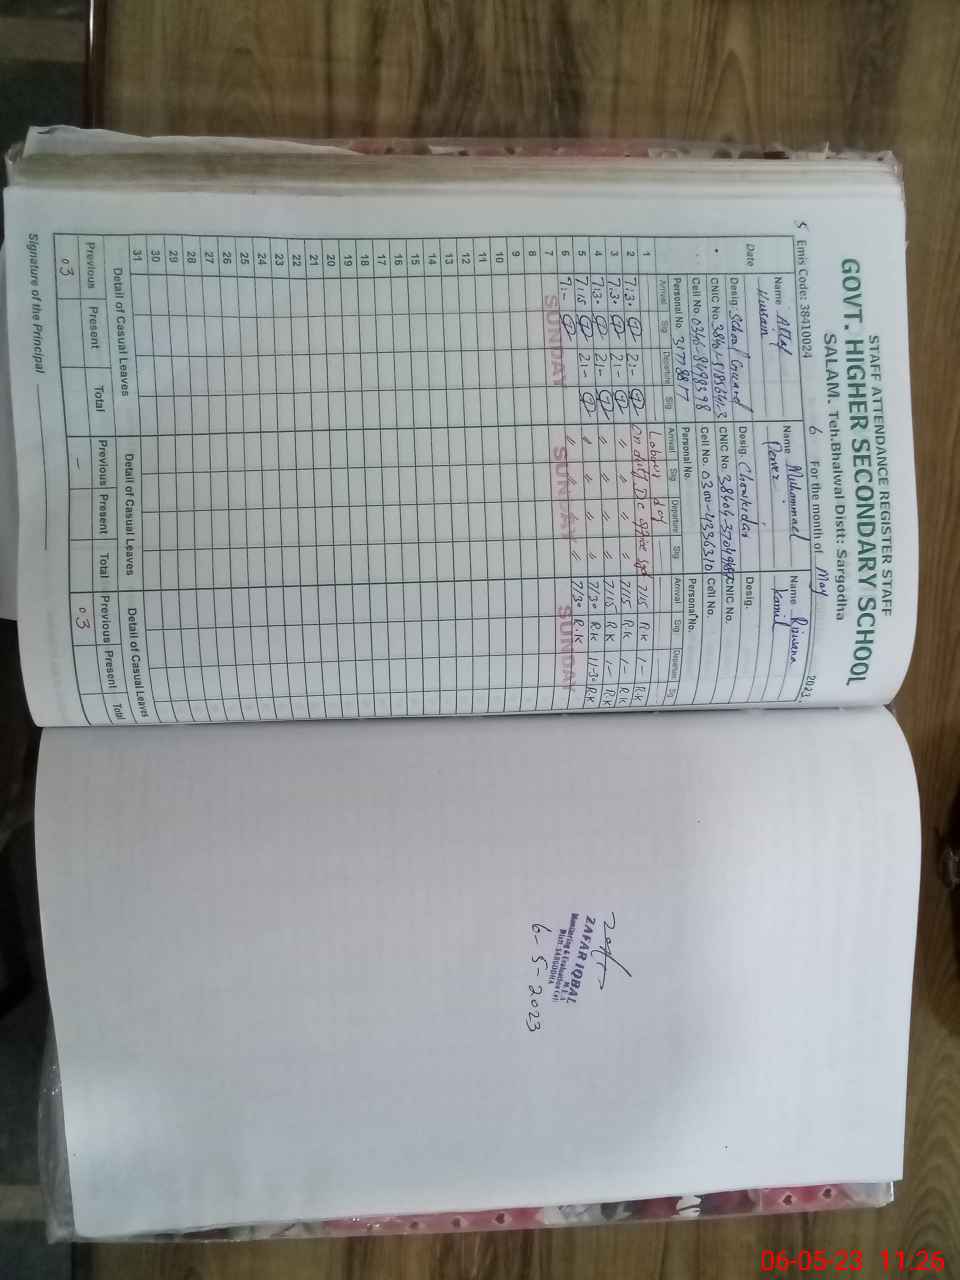 STAFF ATTENDANCE REGISTER STAFF
GOVT. HIGHER SECONDARY SCHOOL
SALAM. Teh.Bhalwal Distt: Sargodha
5 Emis Code: 38410024 6 For the month of May 2023
Name Altaf Husain Name Muhammad Name Rizwana Kamil
Date Desig. School Guard Desig. Chowkidar Desig.
CNIC No. CNIC No. CNIC No.
Cell No. 0346-8698398 Cell No. 0300-4336310 Cell No.
Personal No. 31778817 Personal No. Personal No.
Arrival Sig. Departure Sig. Arrival Sig. Departure Sig. Arrival Sig. Departure Sig.
1 Labour day
2 7:30 2:- On duty D.C office 7/15 R.K 1- R.K
3 7:30 21- " " " " 7/15 R.K 1- R.K
4 7:30 21- " " " " 7/15 R.K 1- R.K
5 7:15 21- " " " " 7/30 R.K 11-30 R.K
6 7:- " " " " 7/30 R.K
7 SUNDAY SUNDAY SUNDAY
8
9
10
11
12
13
14
15
16
17
18
19
20
21
22
23
24
25
26
27
28
29
30
31
Detail of Casual Leaves Detail of Casual Leaves Detail of Casual Leaves
Previous Present Total Previous Present Total Previous Present Total
03 - 03
Signature of the Principal
ZAFAR IQBAL
M.E.A
Monitoring & Evaluation
Distt: SARGODHA
6-5-2023
06-05-23 11:26